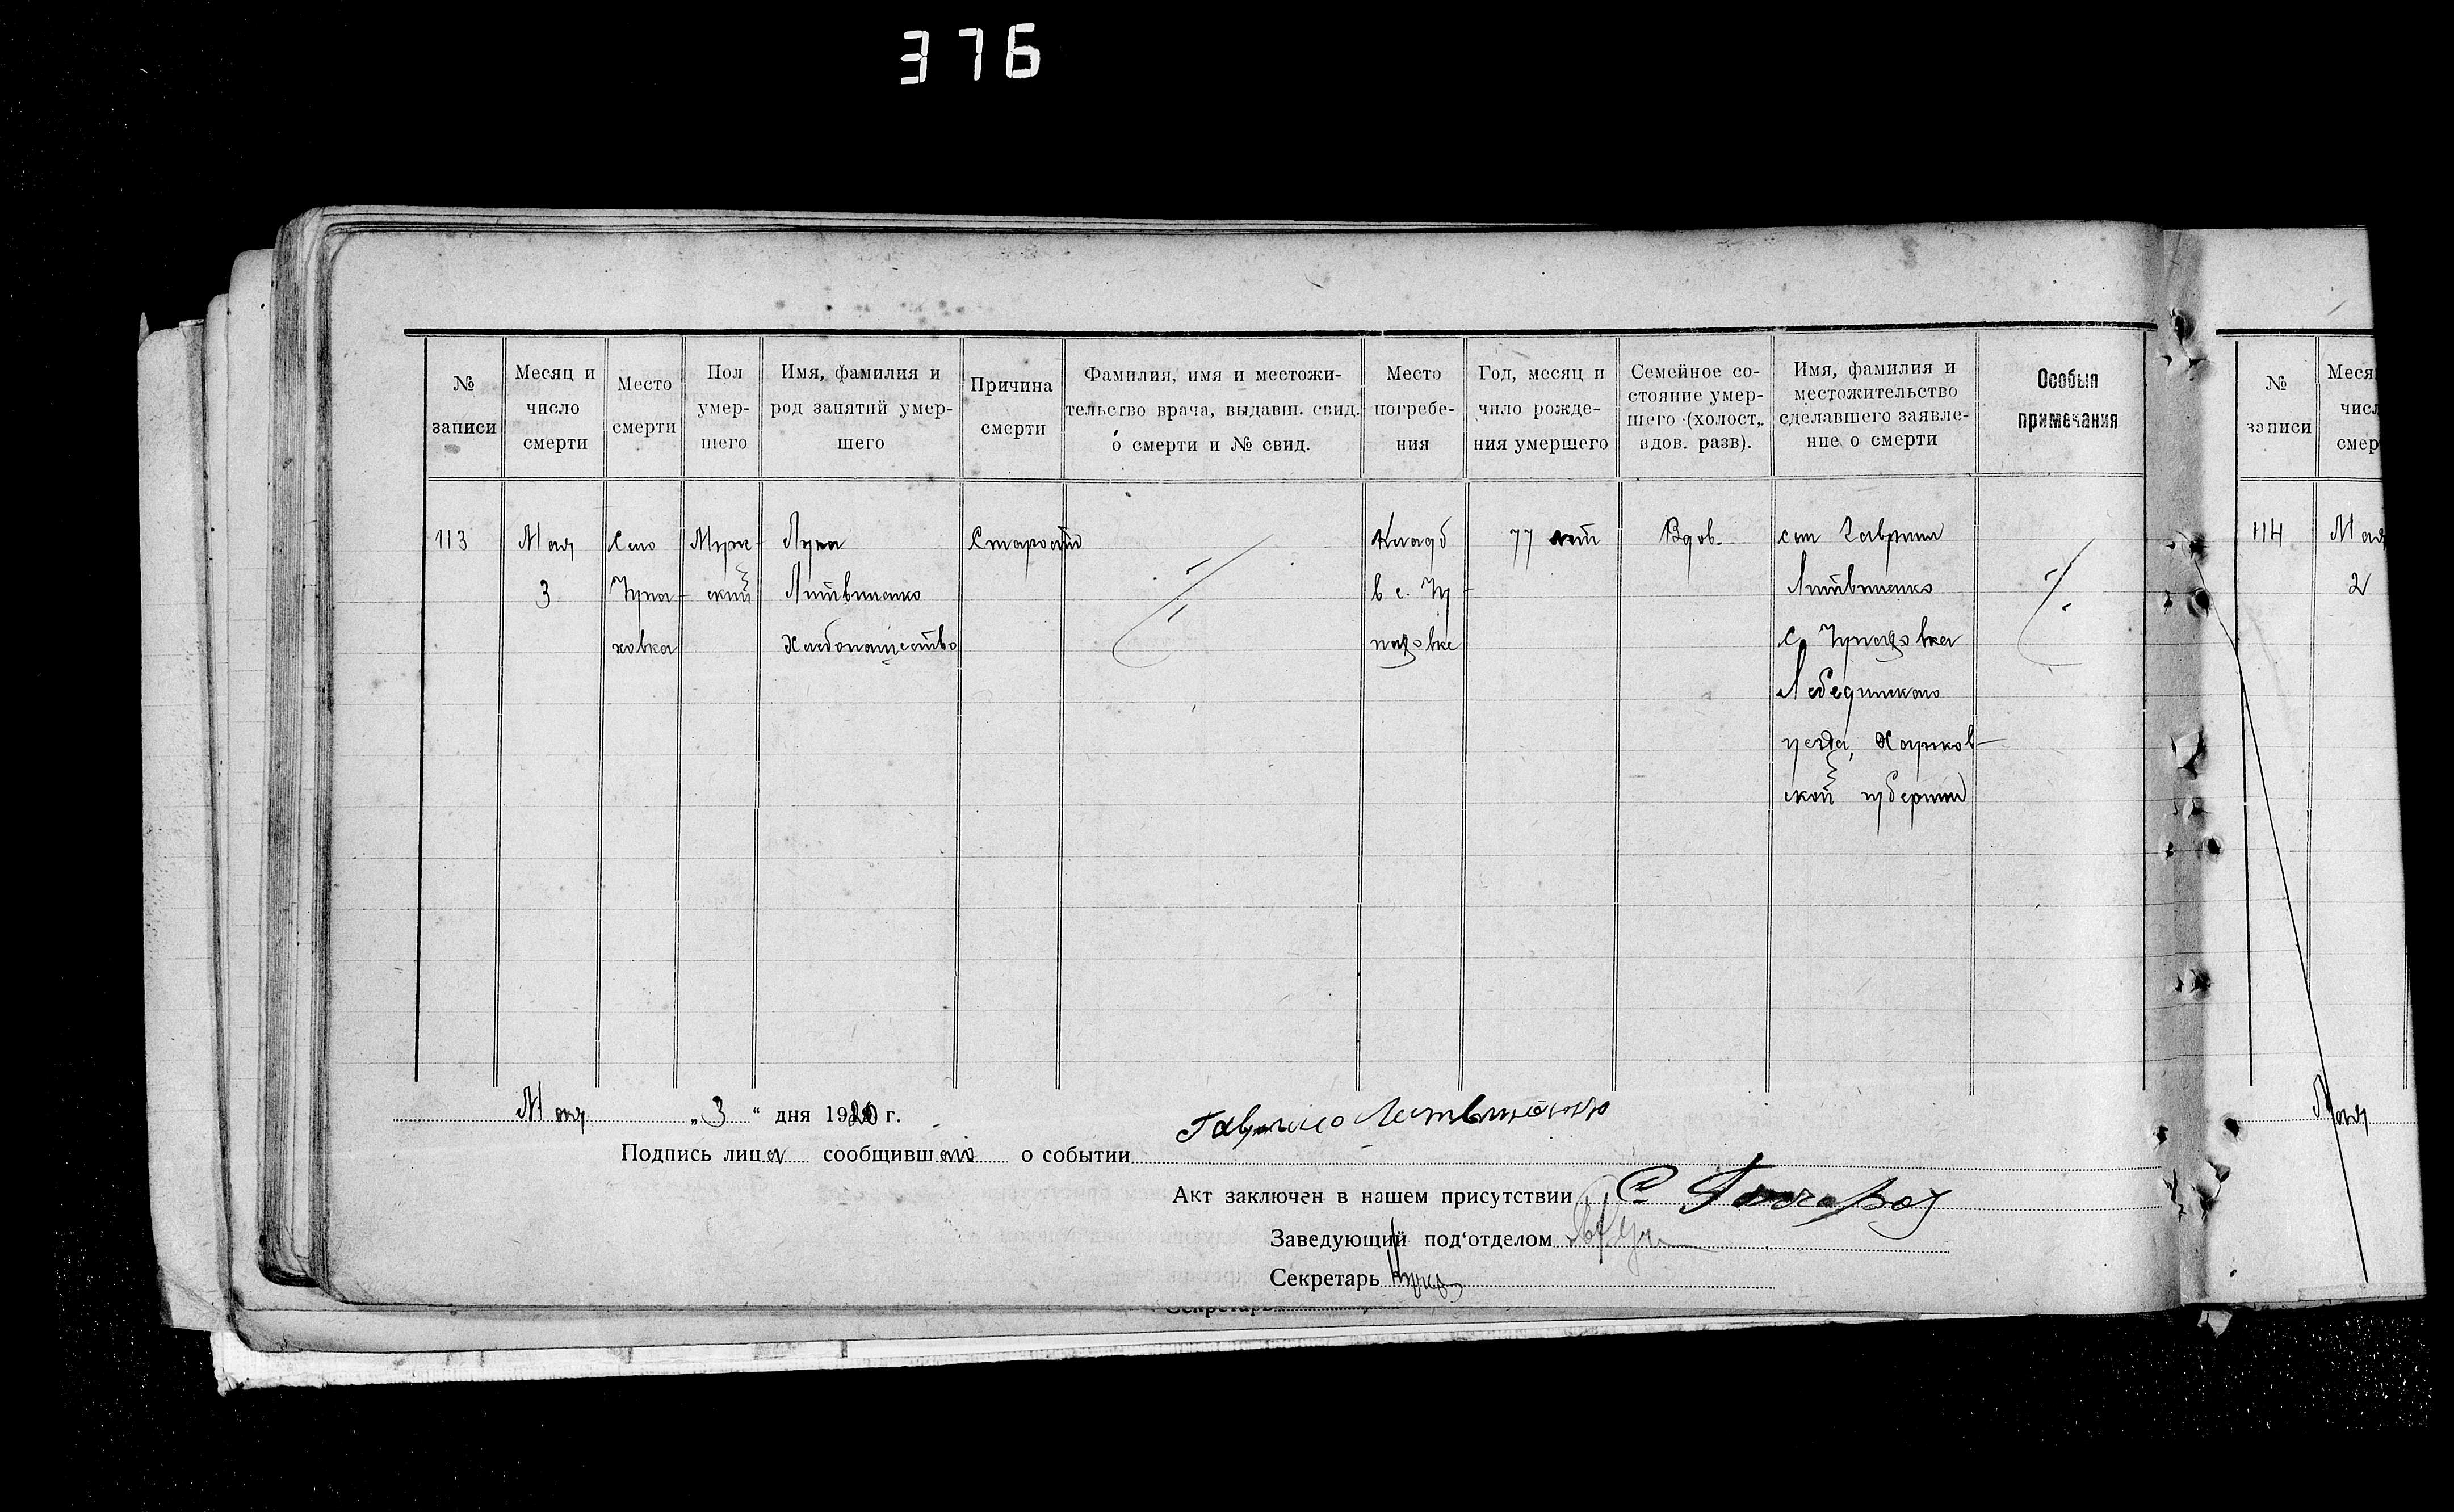 376
№ записи
Месяц и число смерти
Место смерти
Пол умершего
Имя, фамилия и род занятий умершего
Причина смерти
Фамилия, имя и местожительство врача, выдавш. свид. о смерти и № свид.
Место погребения
Год, месяц и число рождения умершего
Семейное состояние умершего (холост, вдов. разв).
Имя, фамилия и местожительство сделавшего заявление о смерти
Особыя примечания
113
Мая
3
Село
Чупа-
ховка
Муж-
ский
Лука
Литвиненко
Хлебопашество
Старость
Кладб
в с. Чу-
паховке
77 лет
Вдов.
сын Гавриил
Литвиненко
с. Чупаховка
Лебединского
уезда, Харьков-
ской губернии
Мая „3“ дня 1920 г.
Подпись лица сообщивш о событии Гаврило Литвиненко
Акт заключен в нашем присутствии С
Заведующий под‘отделом
Секретарь
№ записи
Меся
числ
смер
114
Мая
2
Мая
Секретарь